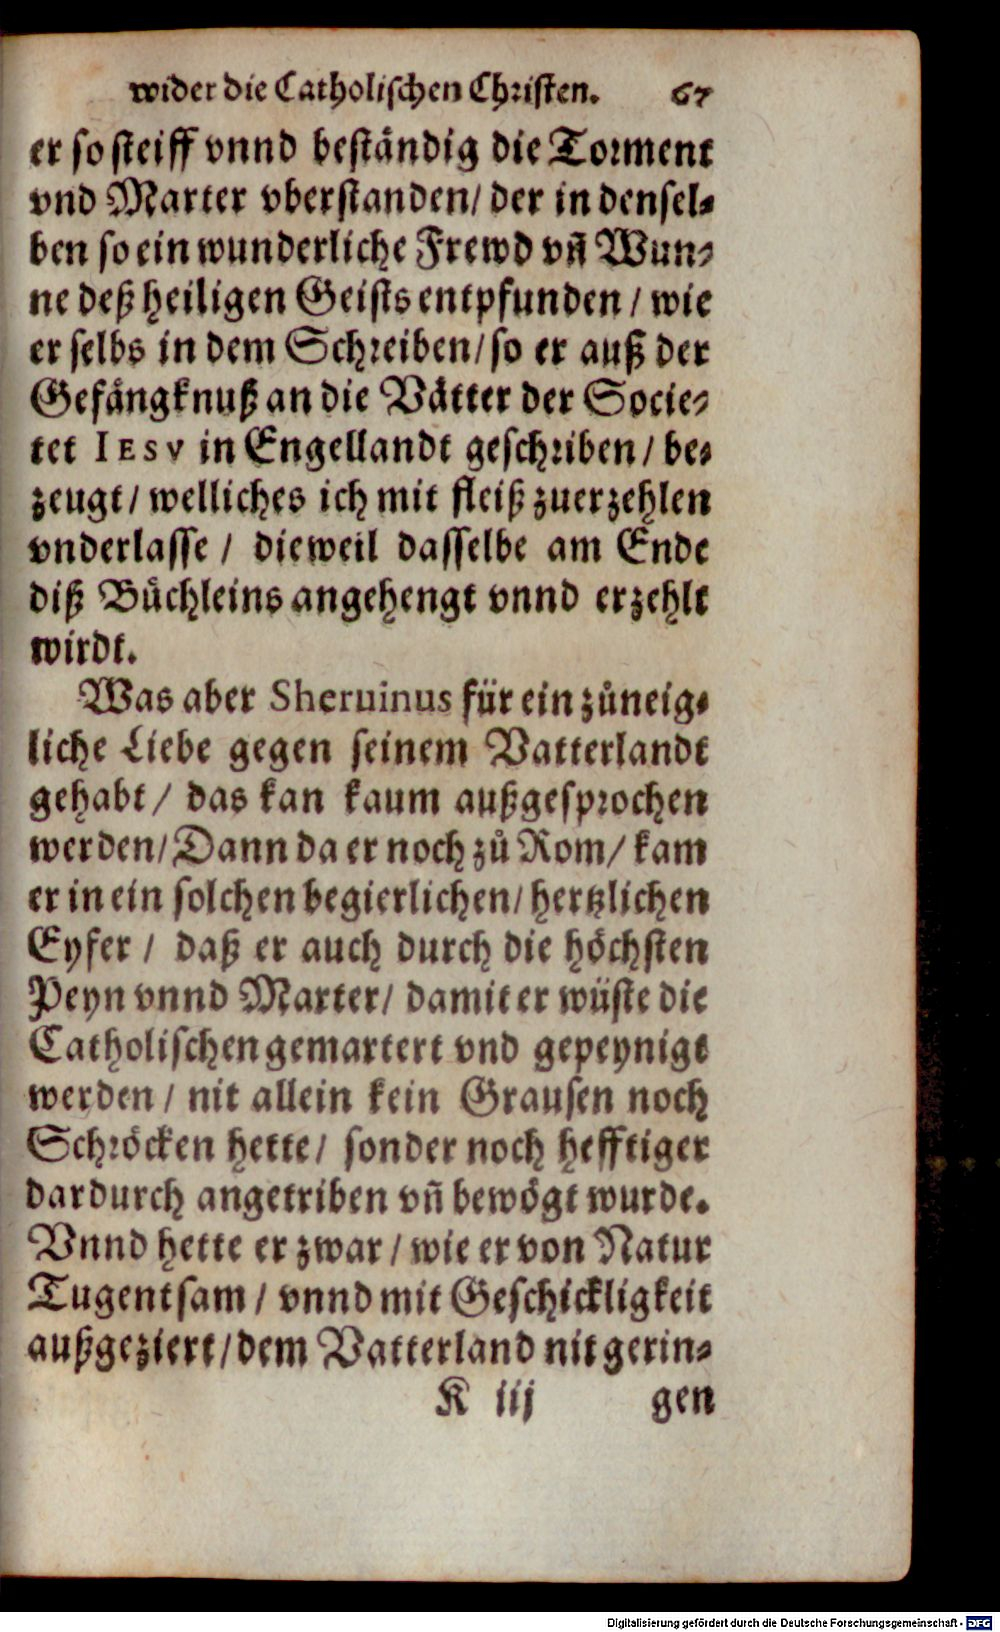 wider die Catholischen Christen. 67
er so steiff vnnd beständig die Torment
vnd Marter vberstanden/ der in densel-
ben so ein wunderliche Frewd vn̄ Wun-
ne deß heiligen Geists entpfunden / wie
er selbs in dem Schreiben/ so er auß der
Gefängknuß an die Vätter der Socie-
tet IESV in Engellandt geschriben / be-
zeugt / welliches ich mit fleiß zuerzehlen
vnderlasse / dieweil dasselbe am Ende
diß Büchleins angehengt vnnd erzehlt
wirdt.
Was aber Sheruinus für ein zůneig-
liche Liebe gegen seinem Vatterlandt
gehabt / das kan kaum außgesprochen
werden/ Dann da er noch zů Rom/ kam
er in ein solchen begierlichen/ hertzlichen
Eyfer / daß er auch durch die höchsten
Peyn vnnd Marter/ damit er wüste die
Catholischen gemartert vnd gepeynigt
werden / nit allein kein Grausen noch
Schröcken hette/ sonder noch hefftiger
dardurch angetriben vn̄ bewögt wurde.
Vnnd hette er zwar / wie er von Natur
Tugentsam / vnnd mit Geschickligkeit
außgeziert/ dem Vatterland nit gerin-
K iij gen
Digitalisierung gefördert durch die Deutsche Forschungsgemeinschaft - DFG